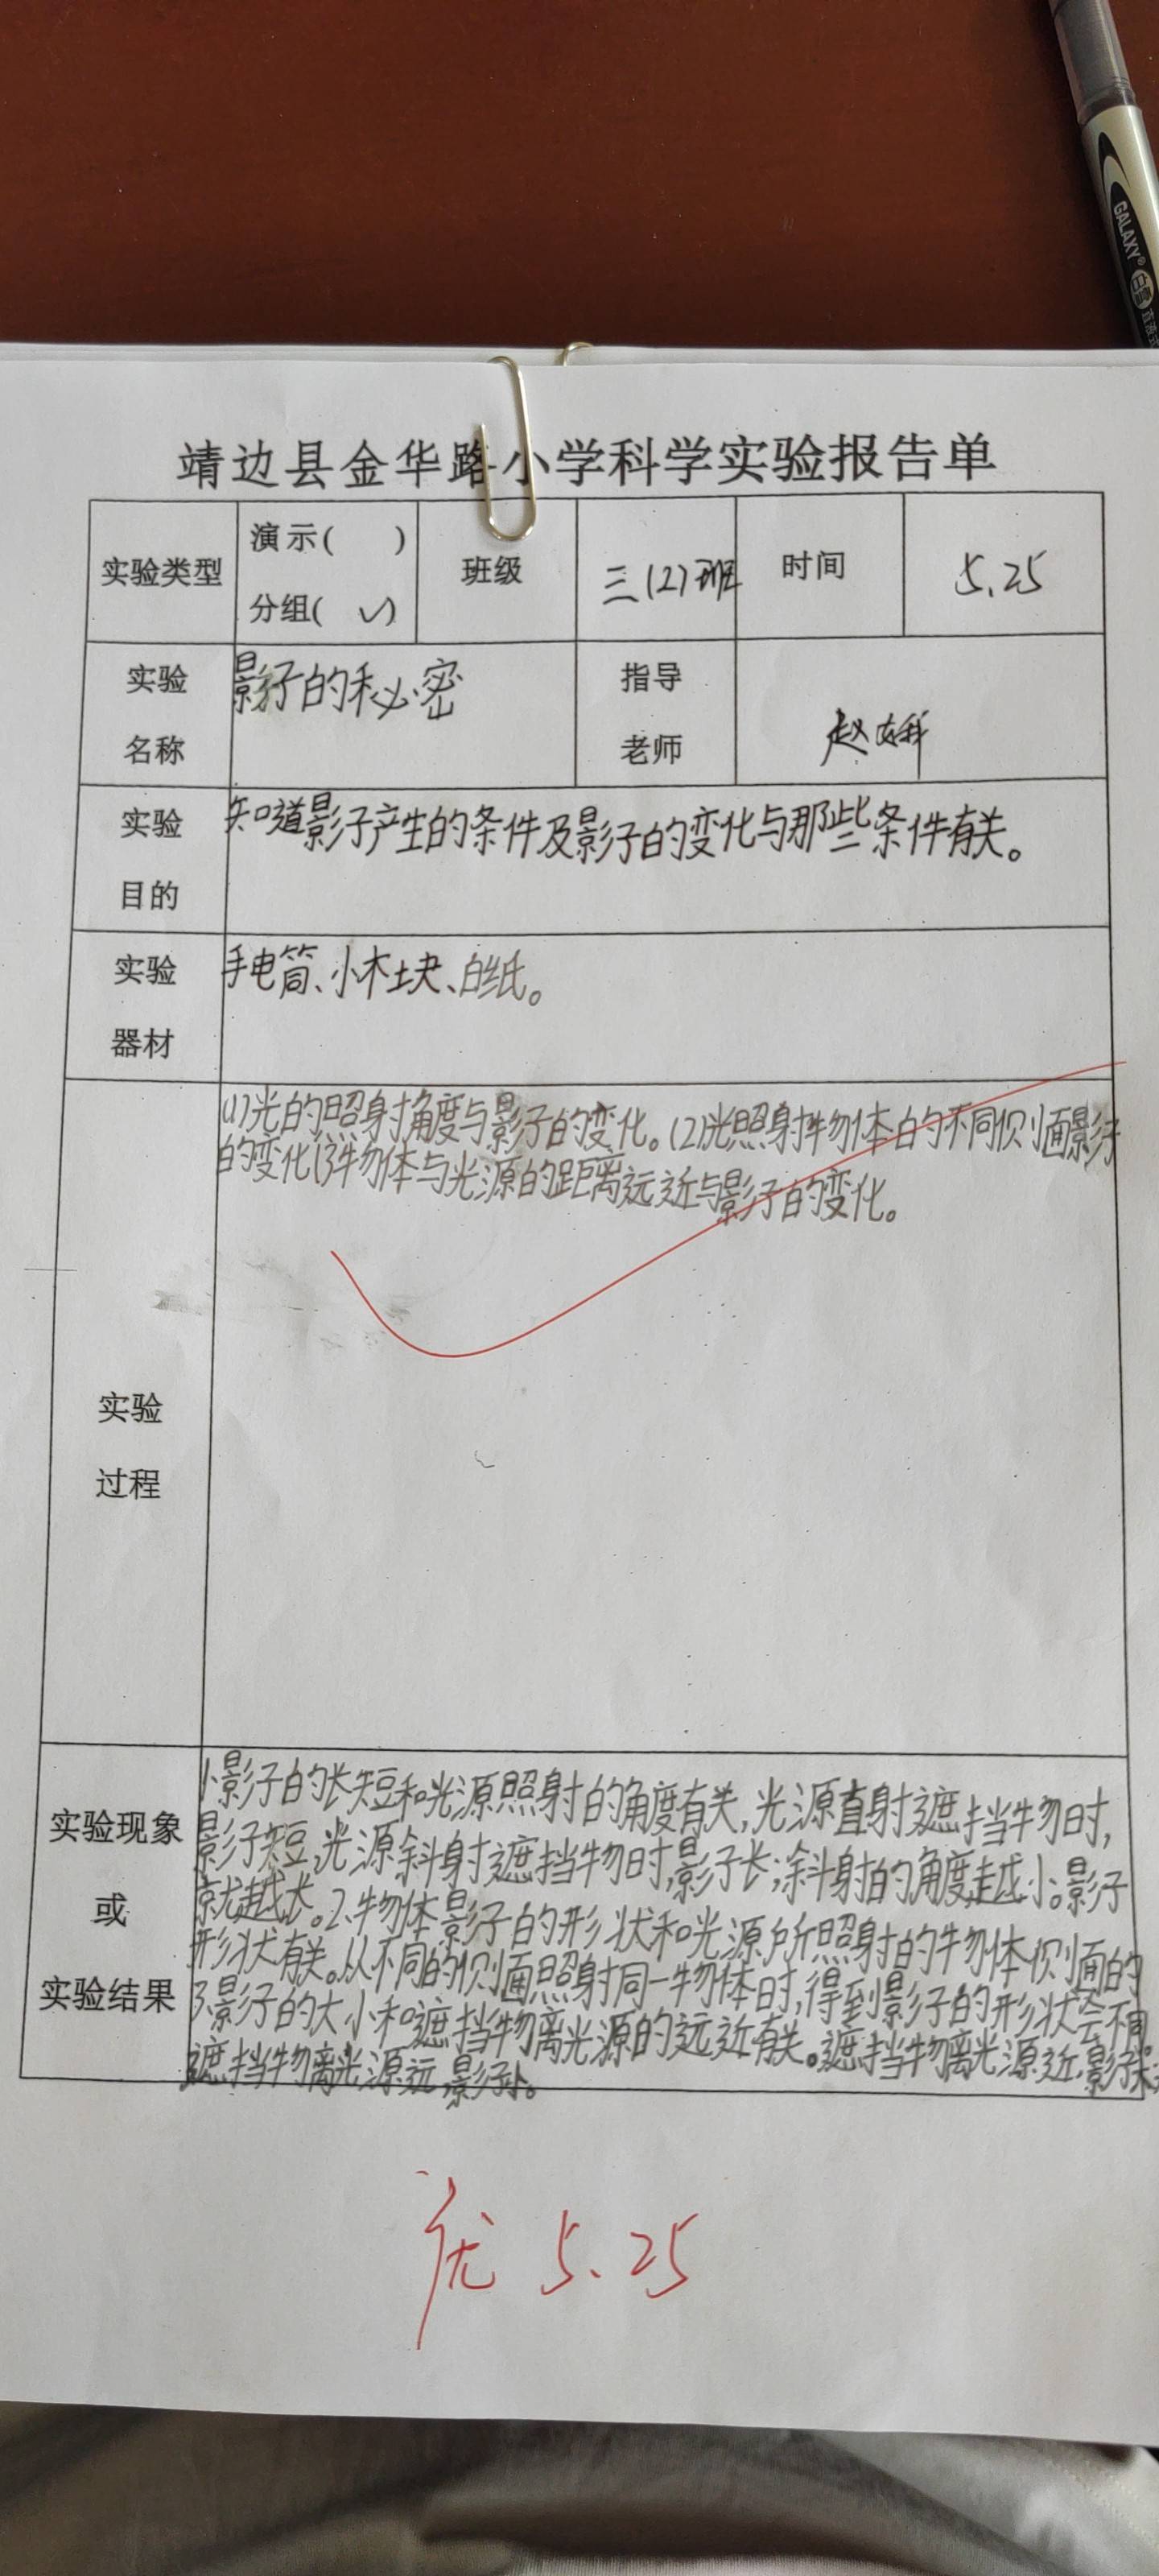 GALAXY®
白雪
直液式
靖边县金华路小学科学实验报告单
实验类型
演示( )
分组( ✓)
班级
三(2)班
时间
5.25
实验
名称
影子的秘密
指导
老师
赵娥
实验
目的
知道影子产生的条件及影子的变化与那些条件有关。
实验
器材
手电筒、小木块、白纸。
实验
过程
(1)光的照射角度与影子的变化。(2)光照射物体的不同侧面影子
的变化(3)物体与光源的距离远近与影子的变化。
实验现象
或
实验结果
1、影子的长短和光源照射的角度有关,光源直射遮挡物时,
影子短,光源斜射遮挡物时,影子长;斜射的角度越小。影子
就越长。2、物体影子的形状和光源所照射的物体侧面的
形状有关。从不同的侧面照射同一物体时,得到影子的形状会不同
3、影子的大小和遮挡物离光源的远近有关。遮挡物离光源近,影子大;
遮挡物离光源远,影子小。
优 5.25